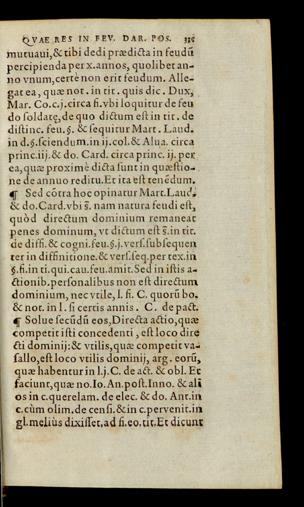 QVAE RES IN FEV. DAR. POS.
mutuaui, & tibi dedi prædicta in feudũ
percipienda per x. annos, quolibet an-
no vnum, certè non erit feudum. Alle-
gat ea, quæ not. in tit. quis dic. Dux,
Mar. Co. c.j. circa fi. vbi loquitur de feu
do soldatę, de quo dictum est in tit. de
distinc. feu. §. & sequitur Mart. Laud.
in d. §. sciendum. in ij. col. & Alua. circa
princ. iij. & do. Card. circa princ. ij. per
ea, quæ proximè dicta sunt in quæstio-
ne de annuo reditu. Et ita est tenẽdum.
¶ Sed cõtra hoc opinatur Mart. Laud.
& do. Card. vbi s̃. nam natura feudi est,
quòd directum dominium remaneat
penes dominum, vt dictum est s̃. in tit.
de diffi. & cogni. feu. §. j. vers. subsequen
ter in diffinitione. & vers. seq. per tex. in
§. fi. in ti. qui. cau. feu. amit. Sed in istis a-
ctionib. personalibus non est directum
dominium, nec vtile, l. si. C. quorũ bo.
& not. in l. si certis annis. C. de pact.
¶ Solue secũdũ eos, Directa actio, quæ
competit isti concedenti, est loco dire
cti dominij: & vtilis, quæ competit va-
sallo, est loco vtilis dominij, arg. eorũ,
quæ habentur in l. j. C. de act. & obl. Et
faciunt, quæ no. Io. An. post. Inno. & ali
os in c. querelam. de elec. & do. Ant. in
c. cùm olim. de censi. & in c. peruenit. in
gl. meliùs dixisset, ad fi. eo. tit. Et dicunt